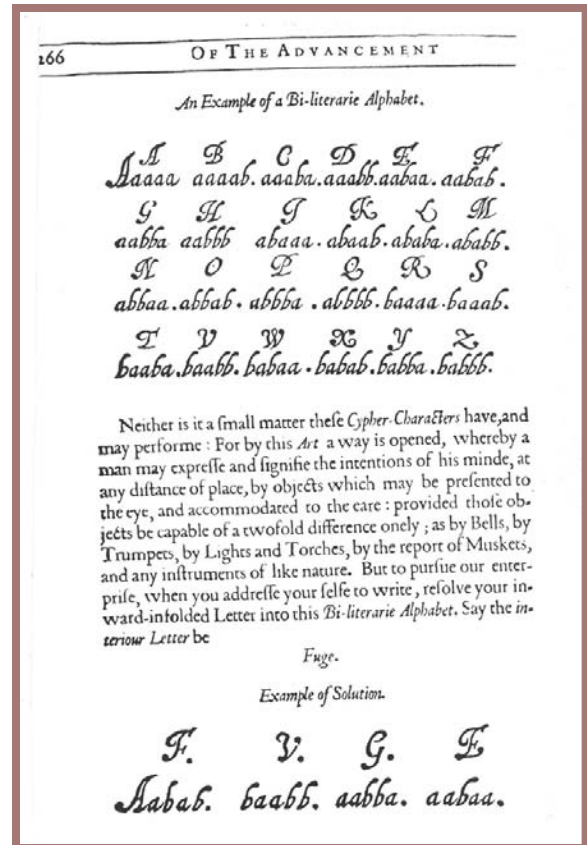 266
OF THE ADVANCEMENT
An Example of a Bi-literarie Alphabet.
A B C D E F
Aaaaa aaaab. aaaba. aaabb. aabaa. aabab.
G H I K L M
aabba aabbb abaaa. abaab. ababa. ababb.
N O P Q R S
abbaa. abbab. abbba. abbbb. baaaa. baaab.
T V W X Y Z
baaba. baabb. babaa. babab. babba. babbb.
Neither is it a ſmall matter theſe Cypher-Characters have, and
may performe : For by this Art a way is opened, whereby a
man may expreſſe and ſignifie the intentions of his minde, at
any diſtance of place, by objects which may be preſented to
the eye, and accommodated to the eare : provided thoſe ob-
jects be capable of a twofold difference onely ; as by Bells, by
Trumpets, by Lights and Torches, by the report of Muskets,
and any inſtruments of like nature. But to purſue our enter-
priſe, when you addreſſe your ſelfe to write, reſolve your in-
ward-infolded Letter into this Bi-literarie Alphabet. Say the in-
teriour Letter be
Fuge.
Example of Solution.
F. V. G. E
Aabab. baabb. aabba. aabaa.